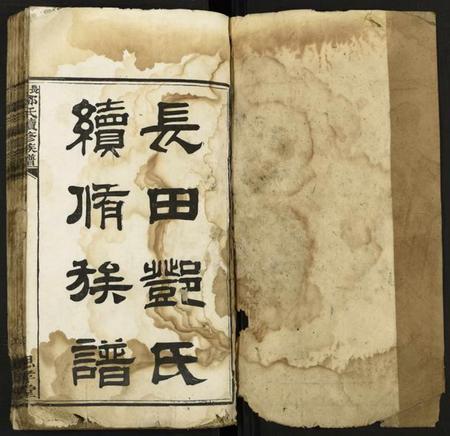 長田鄧氏
續脩族譜
鄧氏續修族譜
堂